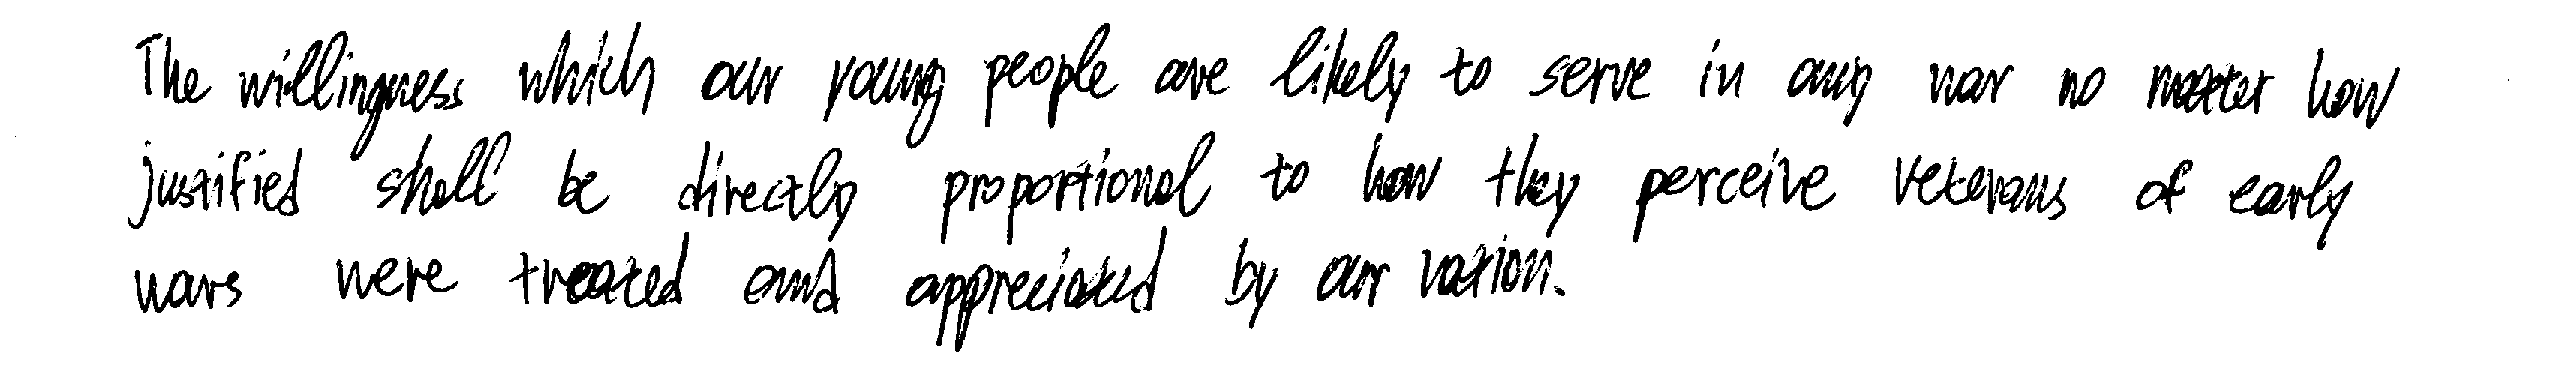 The willingness which our young people are likely to serve in any war no matter how
justified shall be directly proportional to how they perceive veterans of early
wars were treated and appreciated by our nation.